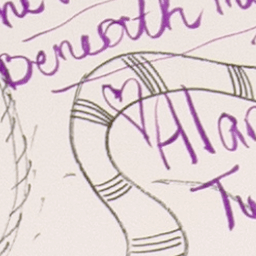 Beneath
Alan
Tu